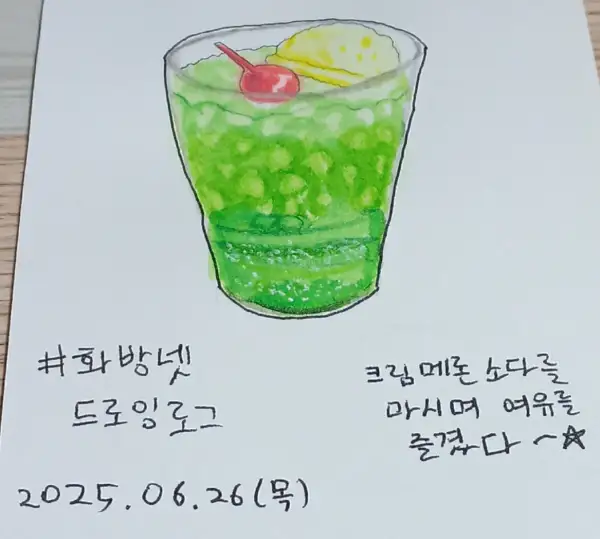 #화방넷
드로잉로그
크림메론소다를
마시며 여유를
즐겼다~☆
2025.06.26(목)